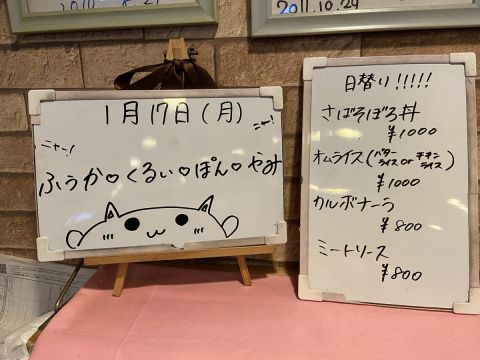 2010.8.29
2011.10.29
1月17日(月)
ニャー!
ニャー!
ふうか♡くるい♡ぽん♡やみ
日替り!!!!!
さばそぼろ丼
¥1000
オムライス(バターライスorチキンライス)
¥1000
カルボナーラ
¥800
ミートソース
¥800